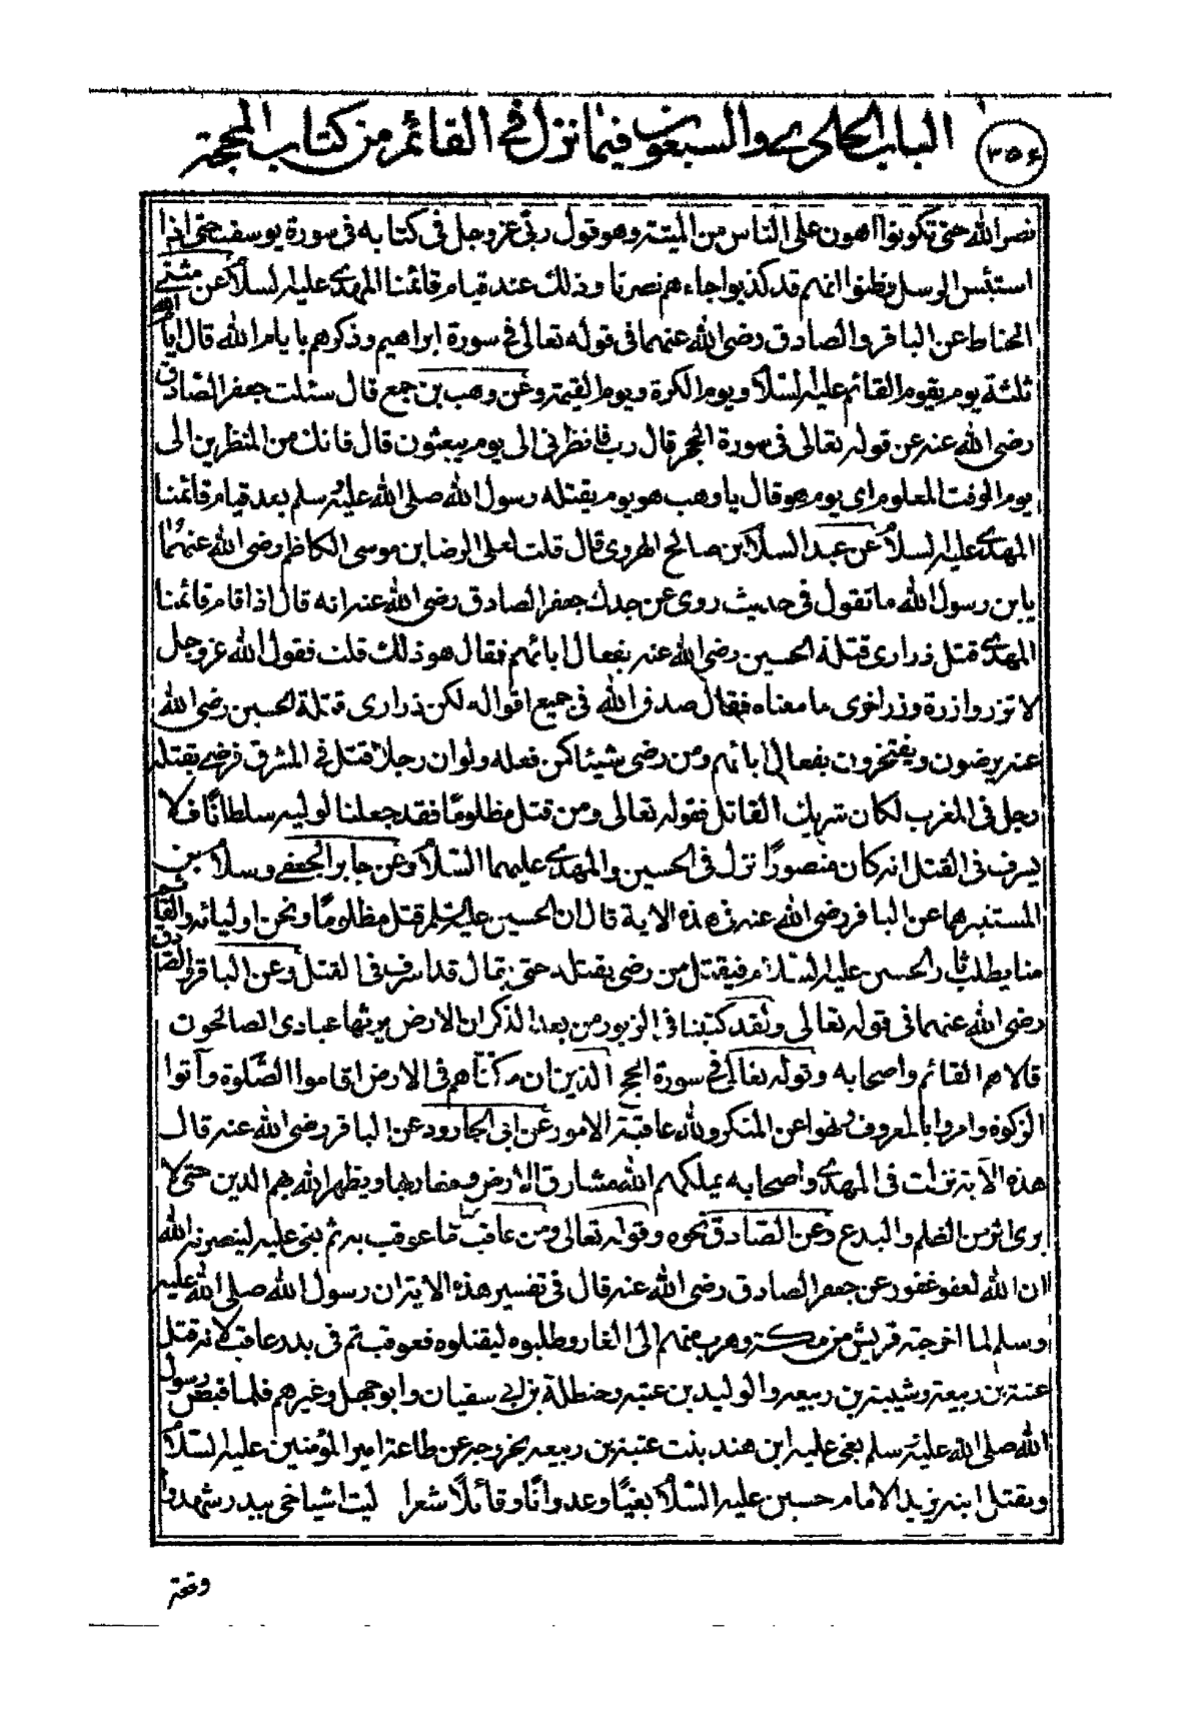 الباب الحادي والسبعون فيما نزل في القائم من كتاب المحجة
٣٥٤
نصر الله حتى تكونوا اهون على الناس من الميتة وهو قول ربي عز وجل في كتابه في سورة يوسف حتى اذا
استيئس الرسل وظنوا انهم قد كذبوا جاءهم نصرنا وذلك عند قيام قائمنا المهدي عليه السلام عن مثنى
الحناط عن الباقر والصادق رضي الله عنهما في قوله تعالى في سورة ابراهيم وذكرهم بايام الله قال ايام الله
ثلثة يوم يقوم القائم عليه السلام ويوم الكرة ويوم القيمة وعن وهب بن جمع قال سئلت جعفر الصادق
رضي الله عنه عن قوله تعالى في سورة الحجر قال رب فانظرني الى يوم يبعثون قال فانك من المنظرين الى
يوم الوقت المعلوم اي يوم هو قال يا وهب هو يوم يقتله رسول الله صلى الله عليه وسلم بعد قيام قائمنا
المهدي عليه السلام عن عبد السلام بن صالح الهروي قال قلت لعلي الرضا بن موسى الكاظم رضي الله عنهما
يابن رسول الله ما تقول في حديث روى عن جدك جعفر الصادق رضي الله عنه انه قال اذا قام قائمنا
المهدي قتل ذراري قتلة الحسين رضي الله عنه بفعال ابائهم فقال هو ذلك قلت فقول الله عز وجل
لا تزر وازرة وزر اخرى ما معناه فقال صدق الله في جميع اقواله لكن ذراري قتلة الحسين رضي الله
عنه يرضون ويفتخرون بفعال ابائهم ومن رضي شيئا كمن فعله ولو ان رجلا قتل في المشرق فرضي بقتله
رجل في المغرب لكان شريك القاتل فقوله تعالى ومن قتل مظلوما فقد جعلنا لوليه سلطانا فلا
يسرف في القتل انه كان منصورا نزل في الحسين والمهدي عليهما السلام وعن جابر الجعفي وسلام بن
المستنير هما عن الباقر رضي الله عنه في هذه الاية قال ان الحسين عليه السلم قتل مظلوما ونحن اوليائه والقائم
منا يطلب ثار الحسين عليه السلام فيقتل من رضي بقتله حتى يقال قد اسرف في القتل وعن الباقر والصادق
رضي الله عنهما في قوله تعالى ولقد كتبنا في الزبور من بعد الذكر ان الارض يرثها عبادي الصالحون
قالا هم القائم واصحابه وقوله تعالى في سورة الحج الذين ان مكناهم في الارض اقاموا الصلوة وآتوا
الزكوة وامروا بالمعروف ونهوا عن المنكر ولله عاقبة الامور عن ابي الجارود عن الباقر رضي الله عنه قال
هذه الآية نزلت في المهدي واصحابه يملكهم الله مشارق الارض ومغاربها ويظهر الله بهم الدين حتى لا
يرى اثر من الظلم والبدع وعن الصادق نحوه وقوله تعالى ومن عاقب بما عوقب به ثم بغي عليه لينصرنه الله
ان الله لعفو غفور عن جعفر الصادق رضي الله عنه قال في تفسير هذه الاية ان رسول الله صلى الله عليه
وسلم لما اخرجته قريش من مكة وهرب منهم الى الغار وطلبوه ليقتلوه فعوقب ثم في بدر عاقب لانه قتل
عتبة بن ربيعة وشيبة بن ربيعه والوليد بن عتبه وحنطلة بن ابي سفيان وابو جهل وغيرهم فلما قبض رسول
الله صلى الله عليه وسلم بغى عليه ابن هند بنت عتبة بن ربيعه بخروجه عن طاعة امير المؤمنين عليه السلام
وبقتل ابنه يزيد الامام حسين عليه السلام بغيا وعدوانا وقائلا شعرا ليت اشياخي ببدر شهدوا